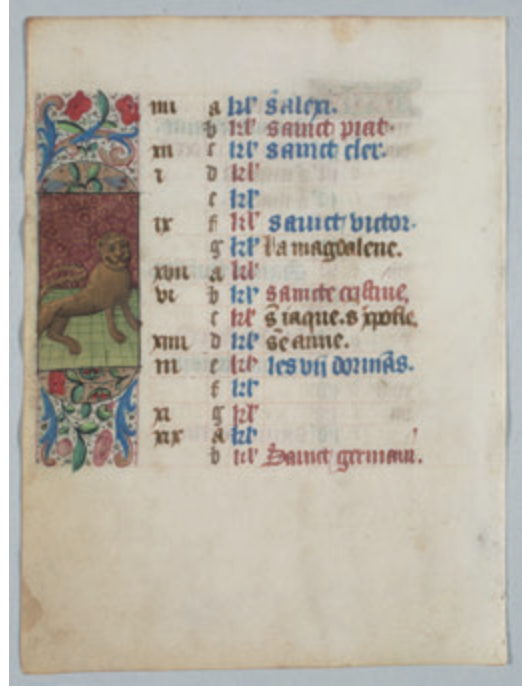 iiii a kl' s alexi.
b kl' sainct piat.
xii c kl' sainct cler.
i d kl'
e kl'
ix f kl' sainct victor.
g kl' la magdalene.
xvii a kl'
vi b kl' saincte cristine.
c kl' s iaque. s xpofle.
xiiii d kl' ste anne.
iii e kl' les vii dormãs.
f kl'
xi g kl'
xix a kl'
b kl' Sainct germain.